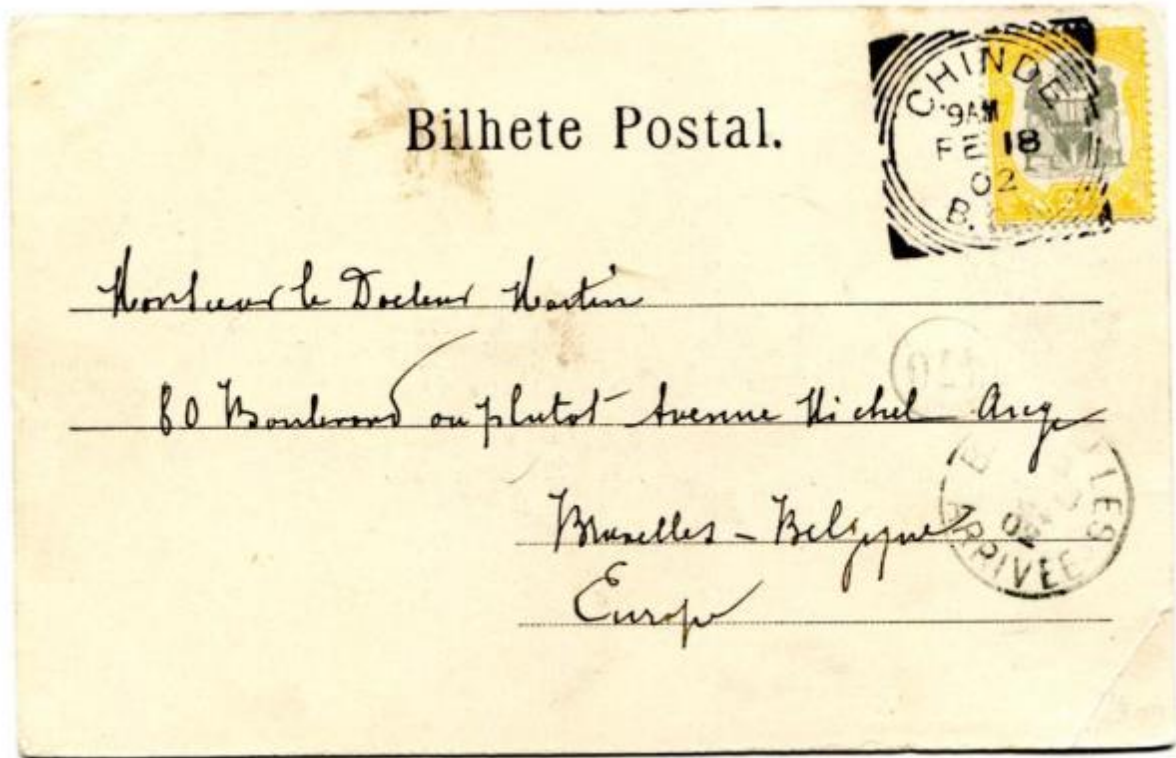 Bilhete Postal.
CHINDE
9AM
FE 18
02
B. A
Monsieur le Docteur Martin
60 Boulevard ou plutot Avenue Michel Ange
Bruxelles - Belgique
Europe
02
ARRIVEE